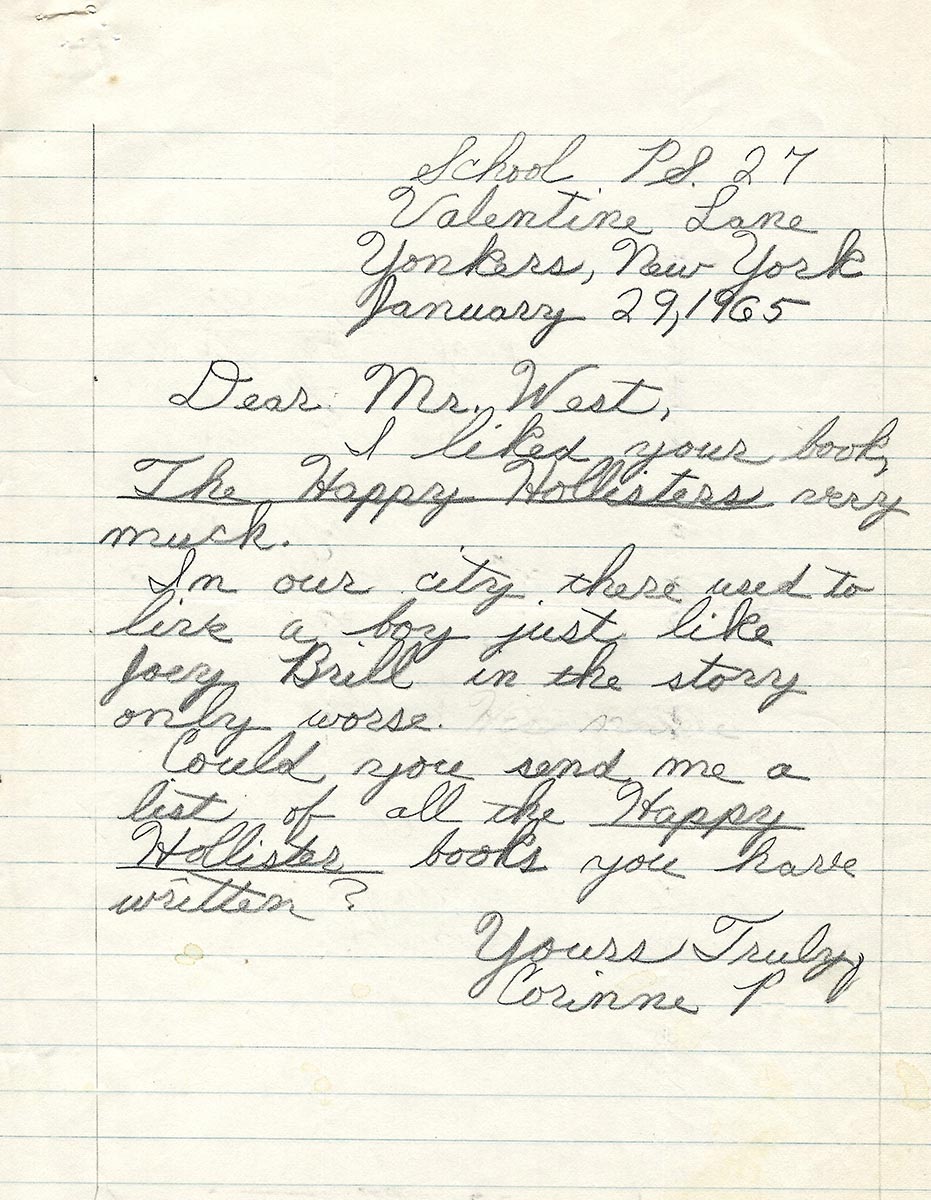 School P.S. 27
Valentine Lane
Yonkers, New York
January 29, 1965
Dear Mr. West,
I liked your book,
The Happy Hollisters very
much.
In our city there used to
live a boy just like
Joey Brill in the story
only worse.
Could you send me a
list of all the Happy
Hollister books you have
written?
Yours Truly,
Corinne P